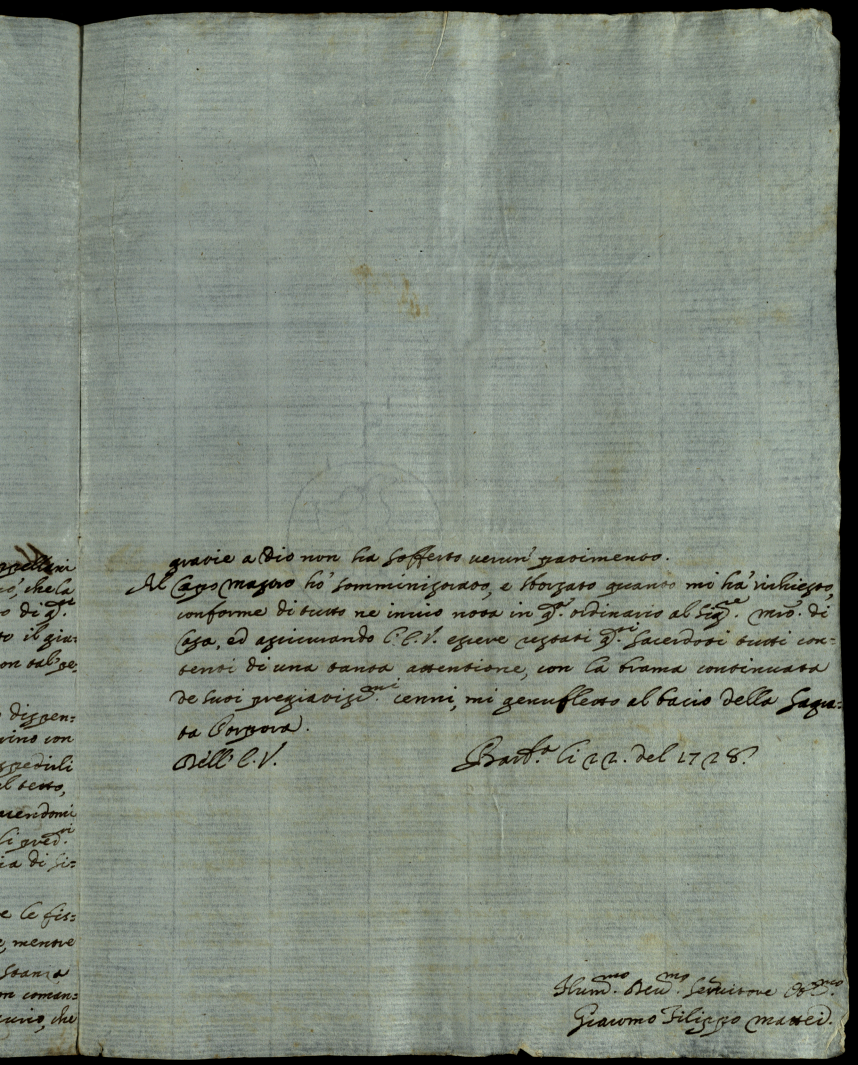 ppellani
co', che la
o di q.sti
to il gia:
on tal pe:
o dispen:
vino con
spedirli
el testo,
avendomi
li pred.ti
ia di si:
e le fis:
e, mentre
stanza
m coman:
curio, che
gratie a Dio non ha sofferto verun' patimento.
Al Capo Mastro ho' somministrato, e sborzato quanto mi ha' richiesto,
conforme di tutto ne invio nota in q.sto ordinario al Sig.re mio di
Casa, ed assicurando l'E.V. essere restati q.sti Sacerdoti tutti con:
tenti di una tanta attentione, con la brama continuata
de suoi pregiatiss.mi cenni, mi genufletto al bacio della Sagra:
ta Porpora.
Dell' E.V.
li 22. del 1728.
Hum.mo Dev.mo Servitore Obl.mo
Giacomo Filippo Mattei.